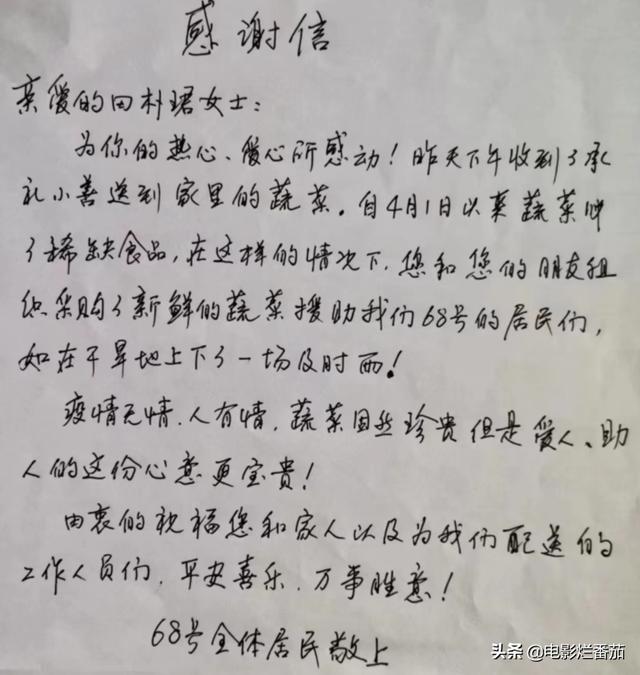 感谢信
亲爱的田朴珺女士：
为你的热心、爱心所感动！昨天下午收到了承
礼小善送到家里的蔬菜。自4月1日以来蔬菜成
了稀缺食品，在这样的情况下，您和您的朋友组
织采购了新鲜的蔬菜援助我们68号的居民们，
如在干旱地上下了一场及时雨！
疫情无情，人有情，蔬菜固然珍贵但是爱人、助
人的这份心意更宝贵！
由衷的祝福您和家人以及为我们配送的
工作人员们，平安喜乐，万事胜意！
68号全体居民敬上
头条 @电影烂番茄